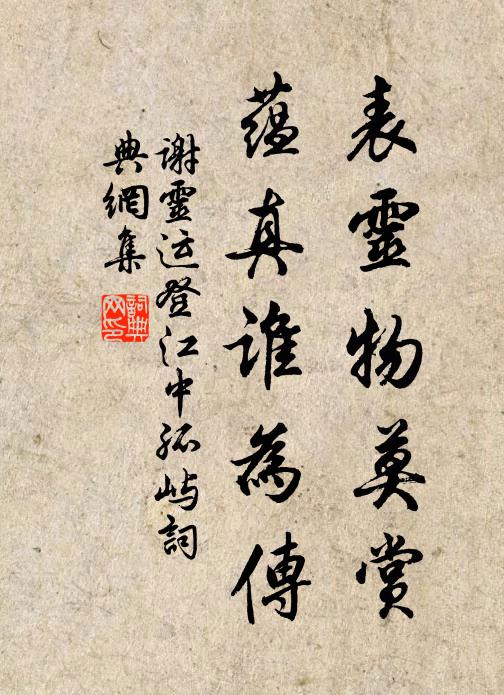 表靈物莫賞
蘊真誰為傳
謝靈运登江中孤屿詞
典網集
詞典
网印